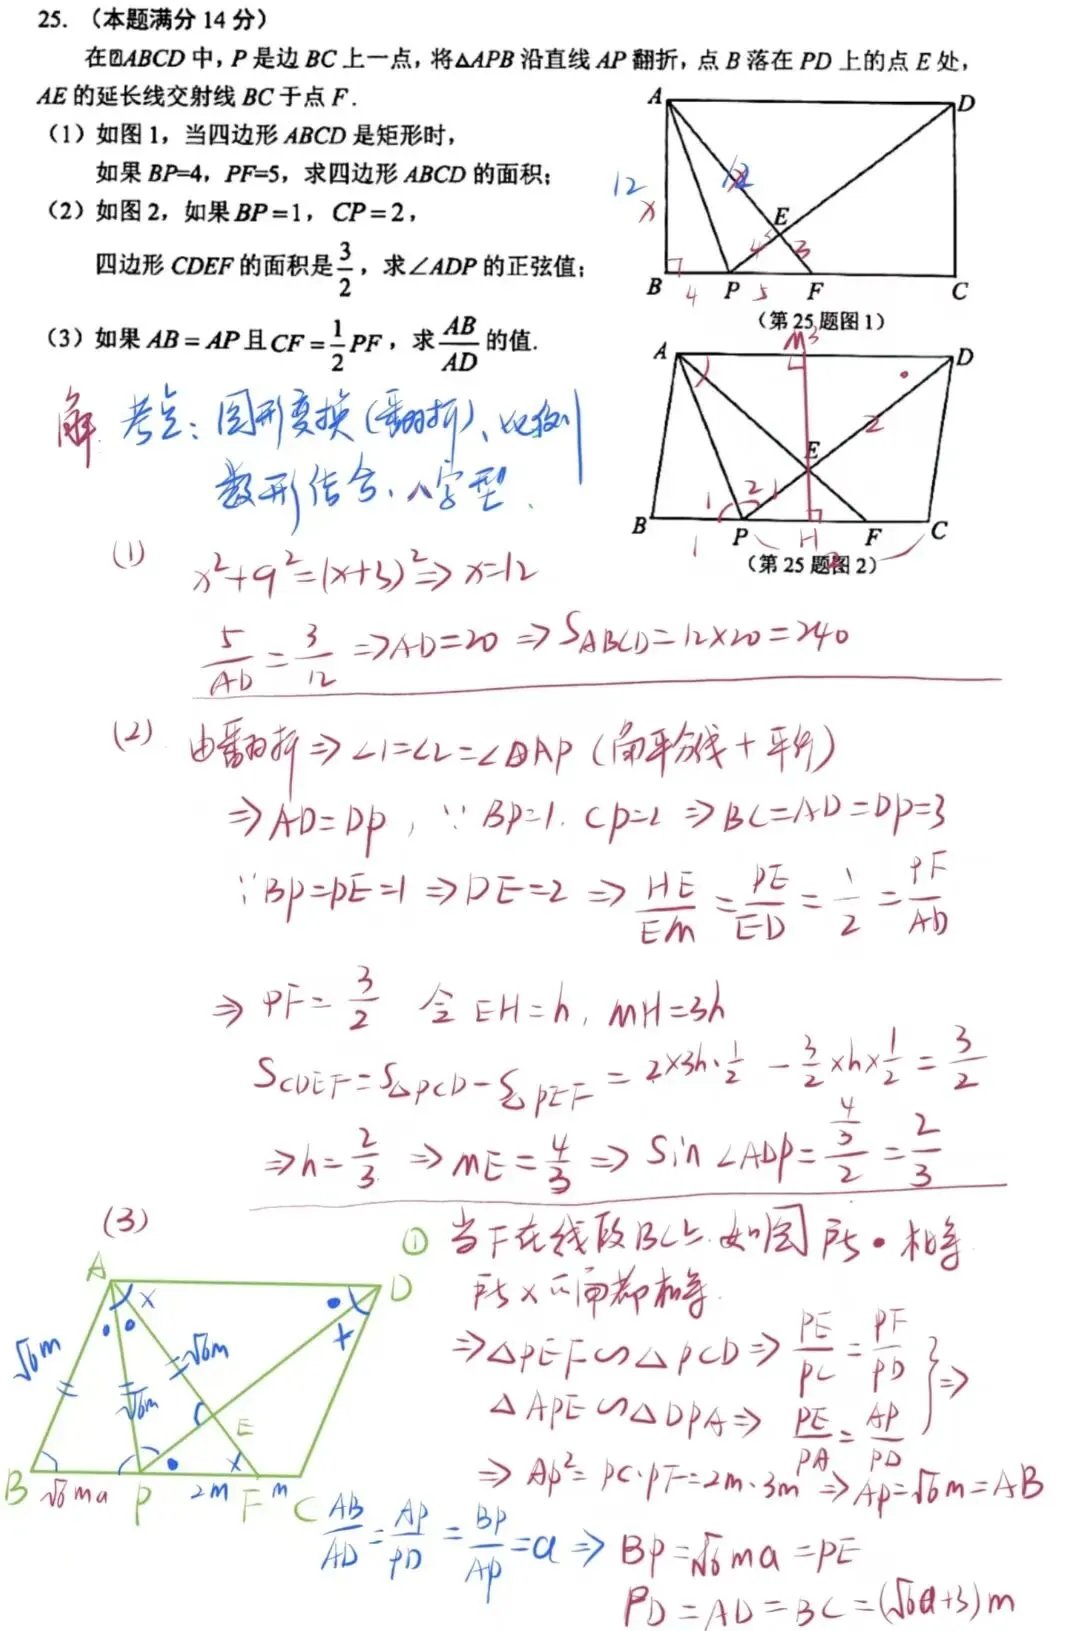 25. （本题满分 14 分）
在▱ABCD 中，P 是边 BC 上一点，将△APB 沿直线 AP 翻折，点 B 落在 PD 上的点 E 处，
AE 的延长线交射线 BC 于点 F.
（1）如图 1，当四边形 ABCD 是矩形时，
如果 BP=4，PF=5，求四边形 ABCD 的面积；
（2）如图 2，如果 BP=1，CP=2，
四边形 CDEF 的面积是3/2，求∠ADP 的正弦值；
（3）如果 AB=AP 且 CF=1/2PF，求AB/AD的值.
A D
12 x 12
E
4 3
B 4 P 5 F C
（第 25 题图 1）
A M 3 D
E 2
1 2 1
B 1 P H F C
（第 25 题图 2）
解 考点：图形变换（翻折）、比例
数形结合、八字型.
(1) x²+9²=(x+3)²⇒x=12
5/AD=3/12⇒AD=20⇒SABCD=12×20=240
(2) 由翻折⇒∠1=∠2=∠DAP（角平分线+平行）
⇒AD=DP，∵BP=1. CP=2⇒BC=AD=DP=3
∵BP=PE=1⇒DE=2⇒HE/EM=PE/ED=1/2=PF/AD
⇒PF=3/2 令EH=h，MH=3h
SCDEF=S△PCD-S△PEF=2×3h·1/2-3/2×h×1/2=3/2
⇒h=2/3⇒ME=4/3⇒Sin∠ADP=(4/3)/2=2/3
(3) ① 当F在线段BC上.如图 所•相等
所x的角都相等.
⇒△PEF∽△PCD⇒PE/PC=PF/PD
△APE∽△DPA⇒PE/PA=AP/PD } ⇒
⇒AP²=PC·PF=2m·3m⇒AP=√6m=AB
A D
x x
√6m √6m √6m
E
B √6ma P 2m F m C
AB/AD=AP/PD=BP/AP=a⇒BP=√6ma=PE
PD=AD=BC=(√6a+3)m